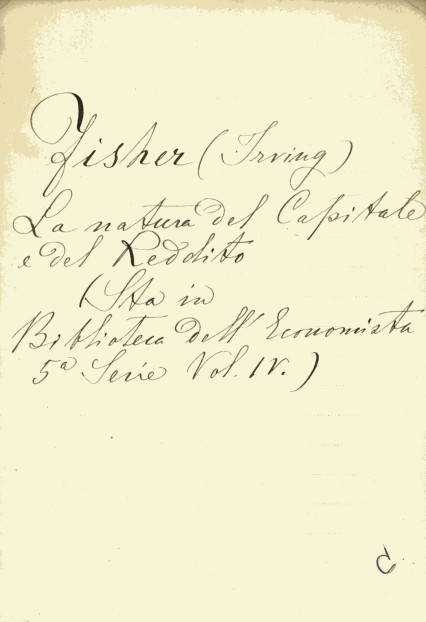 Fisher (Irving)
La natura del Capitale
e del Reddito
(Sta in
Biblioteca dell' Economista
5ª Serie Vol. IV.)